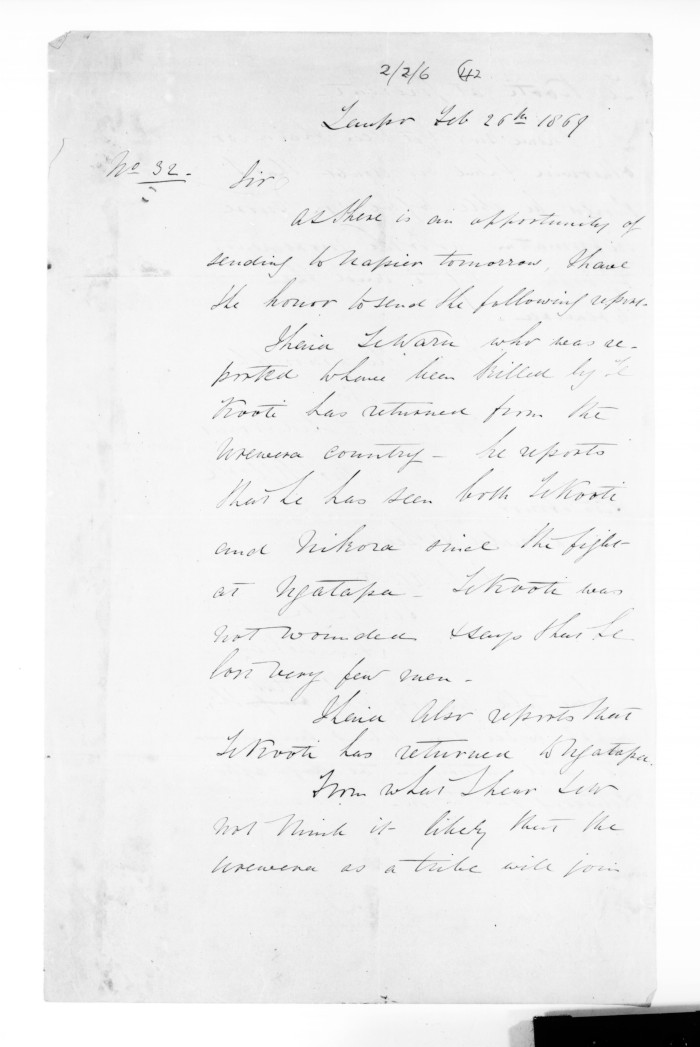 2/2/6 42
Taupo Feb 26th 1869
No 32.
Sir
As there is an opportunity of
sending to Napier tomorrow, I have
the honor to send the following report.
Ihaia Te Waru who was re-
ported to have been killed by Te
Kooti has returned from the
Urewera country - he reports
that he has seen both Te Kooti
and Nikora since the fight
at Ngatapa - Te Kooti was
not wounded & says that he
lost very few men -
Ihaia also reports that
Te Kooti has returned to Ngatapa.
From what I hear I do
not think it likely that the
Urewera as a tribe will join